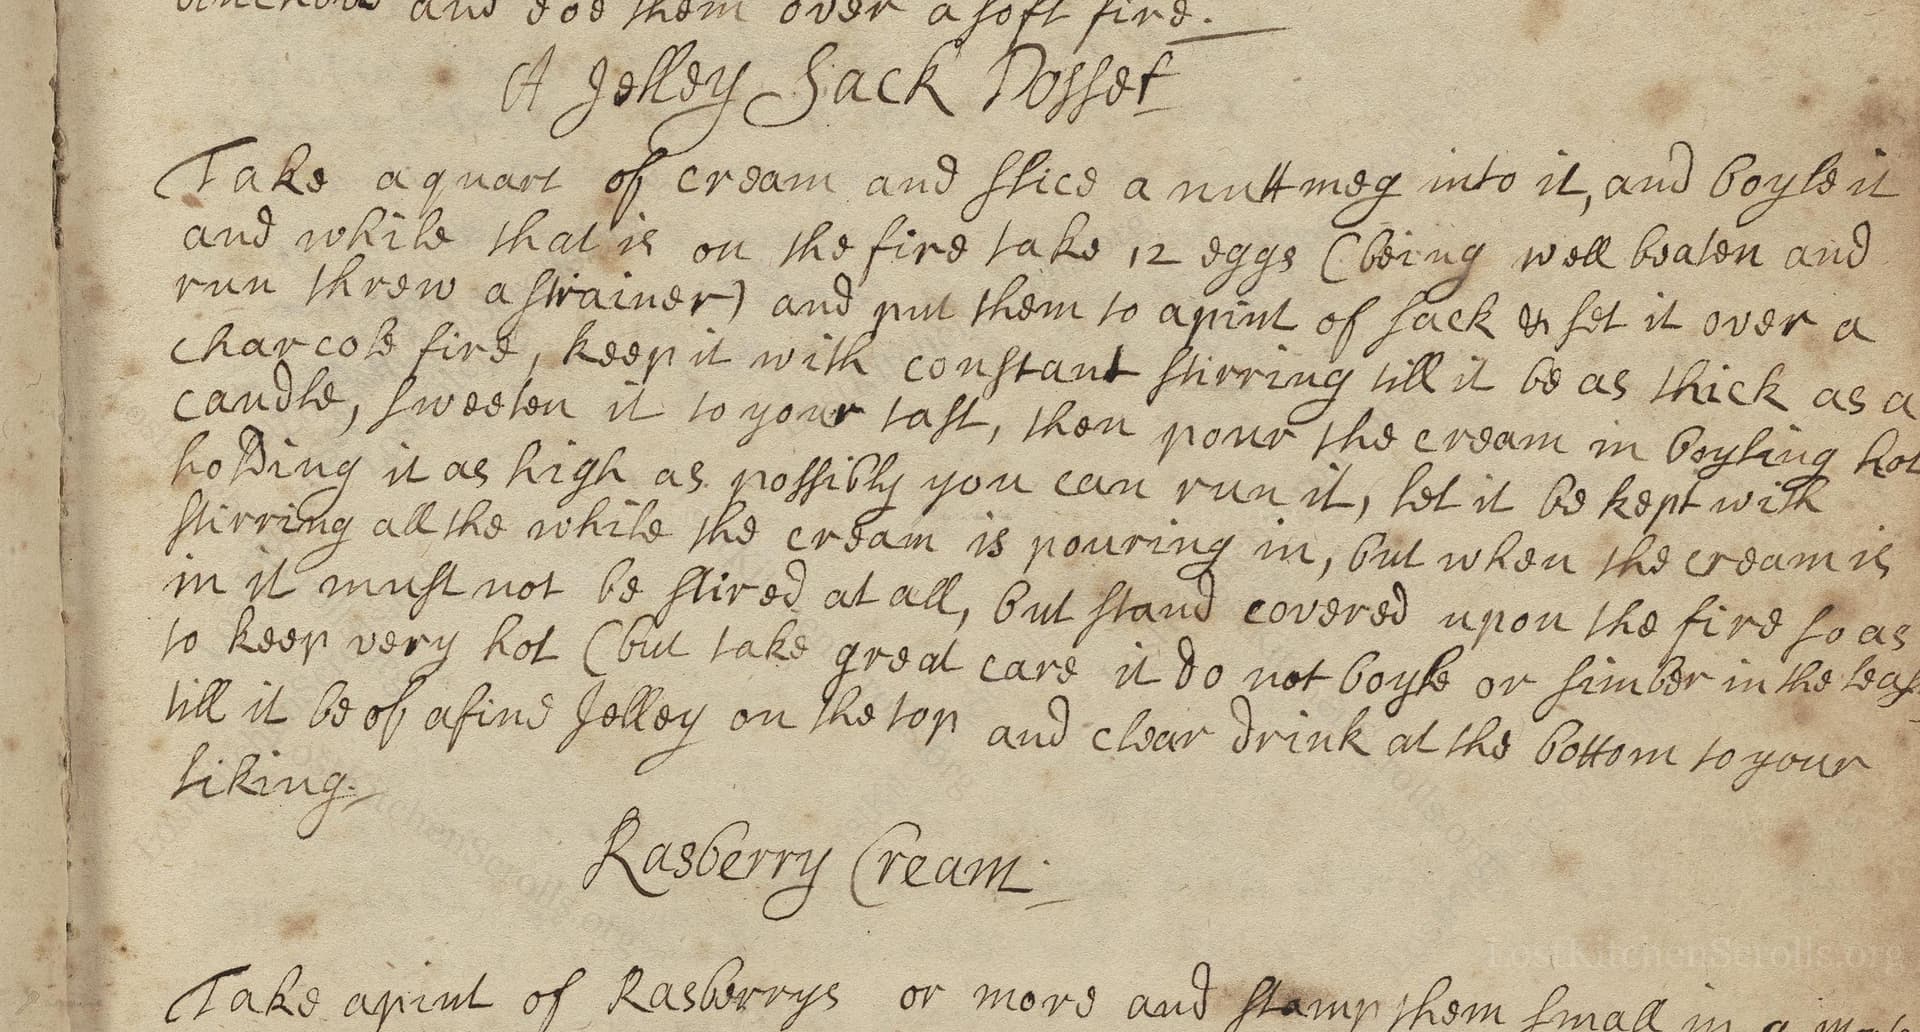 and doe them over a soft fire.
A Jelley Sack Posset
Take a quart of cream and slice a nuttmeg into it, and boyle it
and while that is on the fire take 12 eggs (being well beaten and
run threw a strainer) and put them to a pint of sack & set it over a
charcole fire, keep it with constant stirring till it be as thick as a
caudle, sweeten it to your tast, then pour the cream in boyling hot
holding it as high as possibly you can run it, let it be kept with
stirring all the while the cream is pouring in, but when the cream is
in it must not be stired at all, but stand covered upon the fire so as
to keep very hot (but take great care it do not boyle or simber in the least
till it be of a fine Jelley on the top and clear drink at the bottom to your
liking.
Rasberry Cream.
LostKitchenScrolls.org
Take a pint of Rasberrys or more and stamp them small in a